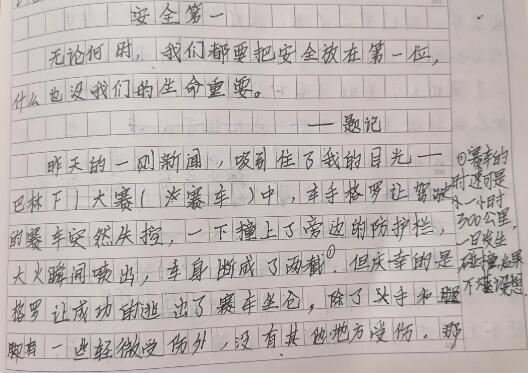 安全第一
无论何时，我们都要把安全放在第一位，
什么也没我们的生命重要。
——题记
昨天的一则新闻，吸引住了我的目光——
巴林F1大赛(汽赛车)中，车手格罗让驾驶
的赛车突然失控，一下撞上了旁边的防护栏，
大火瞬间喷出，车身断成了两截①。但庆幸的是
格罗让成功的逃出了赛车坐仓，除了头手和
脚有一些轻微受伤外，没有其他地方受伤。那
①赛车的
时速可是
一小时
300公里，
一旦发生
碰撞，后果
不堪设想